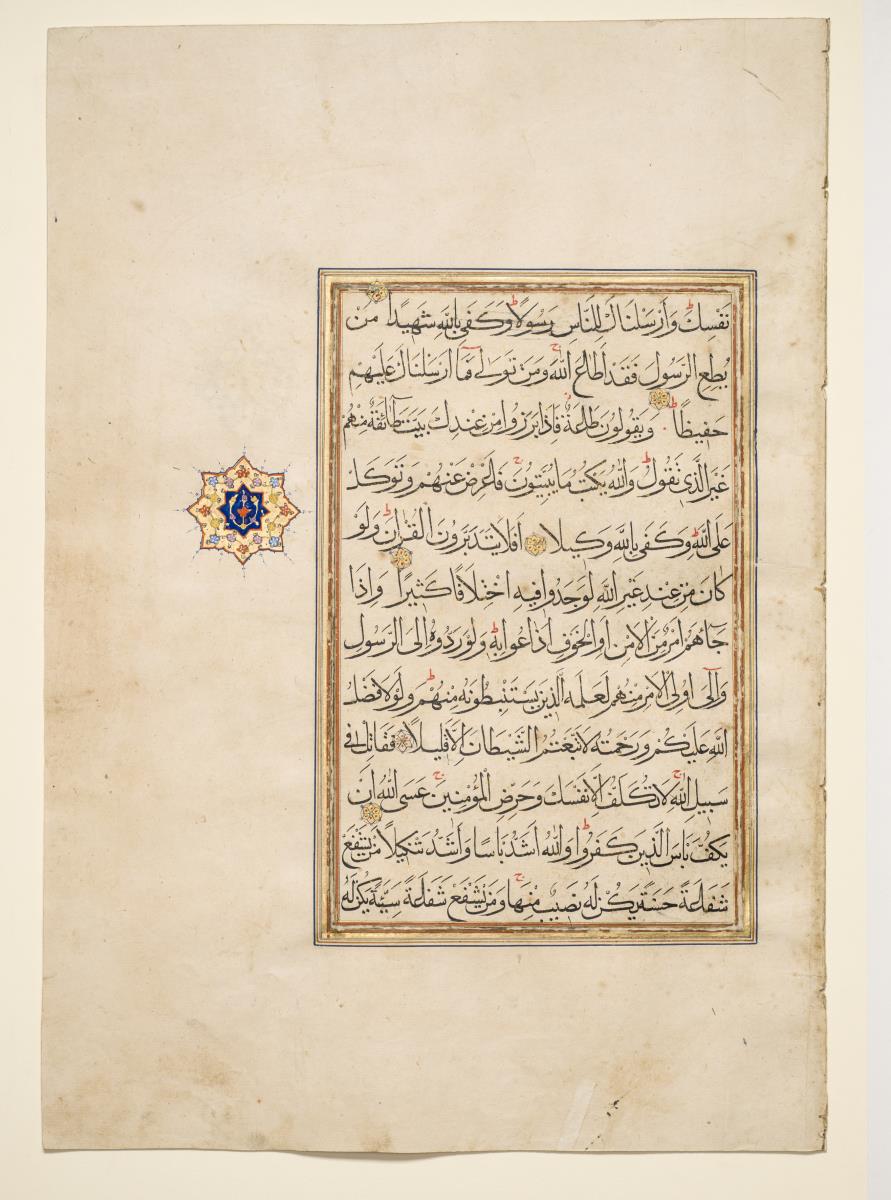 نَفْسِكَ ط وَأَرْسَلْنَاكَ لِلنَّاسِ رَسُولًا ط وَكَفَى بِاللّٰهِ شَهِيدًا مَنْ
يُطِعِ الرَّسُولَ فَقَدْ أَطَاعَ اللّٰهَ ج وَمَنْ تَوَلَّى فَمَا أَرْسَلْنَاكَ عَلَيْهِمْ
حَفِيظًا ط وَيَقُولُونَ طَاعَةٌ فَإِذَا بَرَزُوا مِنْ عِنْدِكَ بَيَّتَ طَائِفَةٌ مِنْهُمْ
غَيْرَ الَّذِي تَقُولُ ط وَاللّٰهُ يَكْتُبُ مَا يُبَيِّتُونَ ج فَأَعْرِضْ عَنْهُمْ وَتَوَكَّلْ
عَلَى اللّٰهِ ط وَكَفَى بِاللّٰهِ وَكِيلًا أَفَلَا يَتَدَبَّرُونَ الْقُرْاٰنَ ط وَلَوْ
كَانَ مِنْ عِنْدِ غَيْرِ اللّٰهِ لَوَجَدُوا فِيهِ اخْتِلَافًا كَثِيرًا وَإِذَا
جَآءَهُمْ أَمْرٌ مِنَ الْأَمْنِ أَوِ الْخَوْفِ أَذَاعُوا بِهِ ط وَلَوْ رَدُّوهُ إِلَى الرَّسُولِ
وَإِلَى أُولِي الْأَمْرِ مِنْهُمْ لَعَلِمَهُ الَّذِينَ يَسْتَنْبِطُونَهُ مِنْهُمْ ط وَلَوْلَا فَضْلُ
اللّٰهِ عَلَيْكُمْ وَرَحْمَتُهُ لَاتَّبَعْتُمُ الشَّيْطَانَ إِلَّا قَلِيلًا فَقَاتِلْ فِي
سَبِيلِ اللّٰهِ ج لَا تُكَلَّفُ إِلَّا نَفْسَكَ وَحَرِّضِ الْمُؤْمِنِينَ ج عَسَى اللّٰهُ أَنْ
يَكُفَّ بَأْسَ الَّذِينَ كَفَرُوا ط وَاللّٰهُ أَشَدُّ بَأْسًا وَأَشَدُّ تَنْكِيلًا مَنْ يَشْفَعْ
شَفَاعَةً حَسَنَةً يَكُنْ لَهُ نَصِيبٌ مِنْهَا ج وَمَنْ يَشْفَعْ شَفَاعَةً سَيِّئَةً يَكُنْ لَهُ